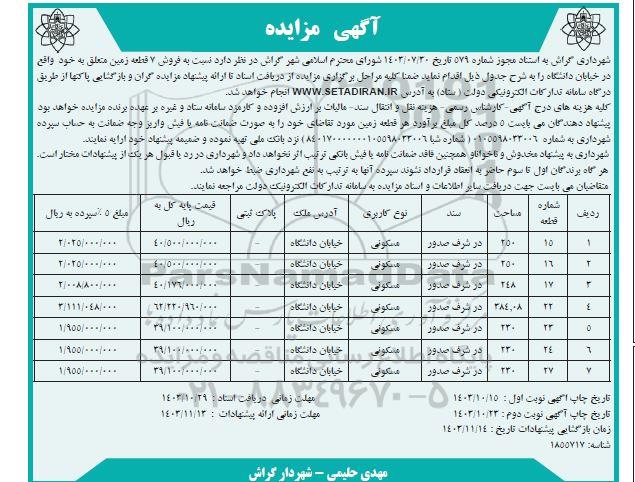 آگهی مزایده
شهرداری گراش به استناد مجوز شماره ۵۷۹ تاریخ ۱۴۰۳/۰۷/۳۰ شورای محترم اسلامی شهر گراش در نظر دارد نسبت به فروش ۷ قطعه زمین متعلق به خود واقع
در خیابان دانشگاه را به شرح جدول ذیل اقدام نماید ضمنا کلیه مراحل برگزاری مزایده از دریافت اسناد تا ارائه پیشنهاد مزایده گران و بازگشایی پاکتها از طریق
درگاه سامانه تدارکات الکترونیکی دولت (ستاد) به آدرس WWW.SETADIRAN.IR انجام خواهد شد.
کلیه هزینه های درج آگهی- کارشناس رسمی- هزینه نقل و انتقال سند- مالیات بر ارزش افزوده و کارمزد سامانه ستاد و غیره بر عهده برنده مزایده خواهد بود
پیشنهاد دهندگان می بایست ۵ درصد کل مبلغ برآورد هر قطعه زمین مورد تقاضای خود را به صورت ضمانت نامه یا فیش واریز وجه ضمانت به حساب سپرده
شهرداری به شماره ۰۱۰۵۵۹۸۰۳۳۰۰۶ (شماره شبا ۸۴۰۱۷۰۰۰۰۰۰۰۱۰۵۵۹۸۰۳۳۰۰۶) نزد بانک ملی تهیه نموده و ضمیمه پیشنهاد خود ارایه نمایند.
شهرداری به پیشنهاد مخدوش و ناخوانا و همچنین فاقد ضمانت نامه یا فیش بانکی ترتیب اثر نخواهد داد و شهرداری در رد یا قبول هر یک از پیشنهادات مختار است.
هر گاه برندگان اول تا سوم حاضر به انعقاد قرارداد نشوند سپرده آنها به ترتیب به نفع شهرداری ضبط خواهد شد.
متقاضیان می بایست جهت دریافت سایر اطلاعات و اسناد مزایده به سامانه تدارکات الکترونیک دولت مراجعه نمایند.
ردیف شماره قطعه مساحت سند نوع کاربری آدرس ملک پلاک ثبتی قیمت پایه کل به ریال مبلغ ۵٪ سپرده به ریال
۱ ۱۵ ۲۵۰ در شرف صدور مسکونی خیابان دانشگاه – ۴۰/۵۰۰/۰۰۰/۰۰۰ ۲/۰۲۵/۰۰۰/۰۰۰
۲ ۱۶ ۲۵۰ در شرف صدور مسکونی خیابان دانشگاه – ۴۰/۵۰۰/۰۰۰/۰۰۰ ۲/۰۲۵/۰۰۰/۰۰۰
۳ ۱۷ ۲۴۸ در شرف صدور مسکونی خیابان دانشگاه – ۴۰/۱۷۶/۰۰۰/۰۰۰ ۲/۰۰۸/۸۰۰/۰۰۰
۴ ۲۲ ۳۸۴,۰۸ در شرف صدور مسکونی خیابان دانشگاه – ۶۲/۲۲۰/۹۶۰/۰۰۰ ۳/۱۱۱/۰۴۸/۰۰۰
۵ ۲۳ ۲۳۰ در شرف صدور مسکونی خیابان دانشگاه – ۳۹/۱۰۰/۰۰۰/۰۰۰ ۱/۹۵۵/۰۰۰/۰۰۰
۶ ۲۴ ۲۳۰ در شرف صدور مسکونی خیابان دانشگاه – ۳۹/۱۰۰/۰۰۰/۰۰۰ ۱/۹۵۵/۰۰۰/۰۰۰
۷ ۲۷ ۲۳۰ در شرف صدور مسکونی خیابان دانشگاه – ۳۹/۱۰۰/۰۰۰/۰۰۰ ۱/۹۵۵/۰۰۰/۰۰۰
ParsNamadData
پایگاه اطلاع رسانی مناقصه و مزایده
۰۲۱-۸۸۳۴۹۶۷۰-۵
تاریخ چاپ آگهی نوبت اول : ۱۴۰۳/۱۰/۱۵ مهلت زمانی دریافت اسناد : ۱۴۰۳/۱۰/۲۹
تاریخ چاپ آگهی نوبت دوم : ۱۴۰۳/۱۰/۲۳ مهلت زمانی ارائه پیشنهادات : ۱۴۰۳/۱۱/۱۳
زمان بازگشایی پیشنهادات تاریخ : ۱۴۰۳/۱۱/۱۴
شناسه: ۱۸۵۵۷۱۷
مهدی حلیمی – شهردار گراش